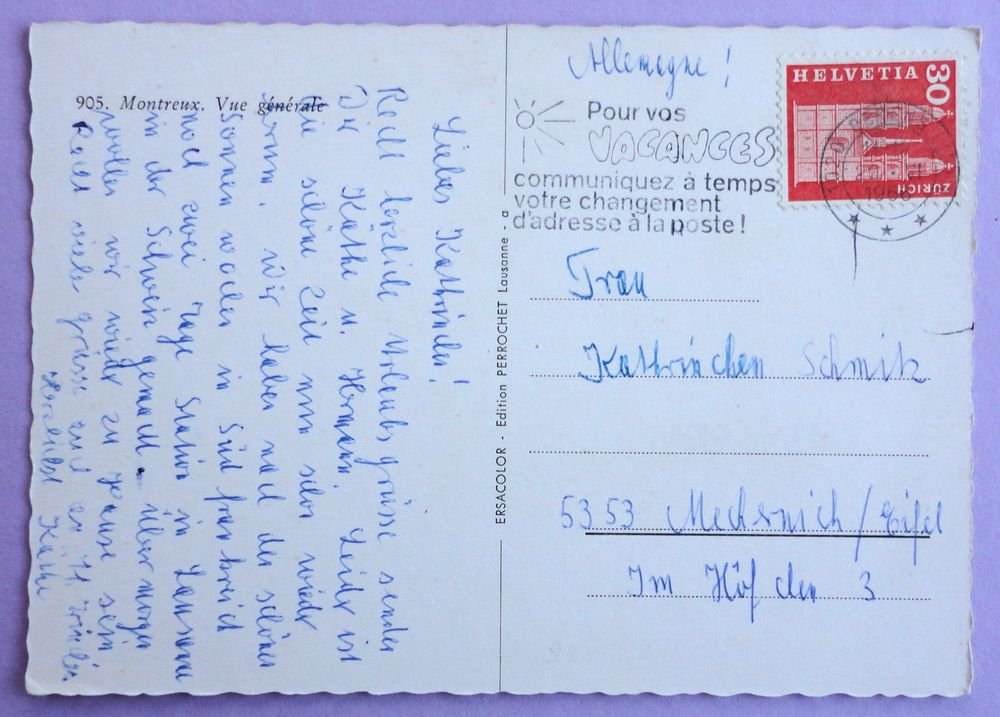 905. Montreux. Vue générale
Liebes Kathrinchen!
Recht herzliche Urlaubsgrüsse senden
Dir Käthe u. Hermann. Leider ist
die schöne Zeit nun schon wieder
herum. Wir haben nach den schönen
Sonnen wochen in Südfrankreich
noch zwei Tage Station in Lausanne
in der Schweiz gemacht. Übermorgen
wollen wir wieder zu Hause sein.
Recht viele Grüsse und
Herzlichst Käthe
ERSACOLOR - Edition PERROCHET Lausanne - a
Allemagne!
Pour vos
VACANCES
communiquez à temps
votre changement
d'adresse à la poste!
HELVETIA 30
ZÜRICH
Frau
Kathrinchen Schmitz
5353 Mechernich/Eifel
Im Höfchen 3